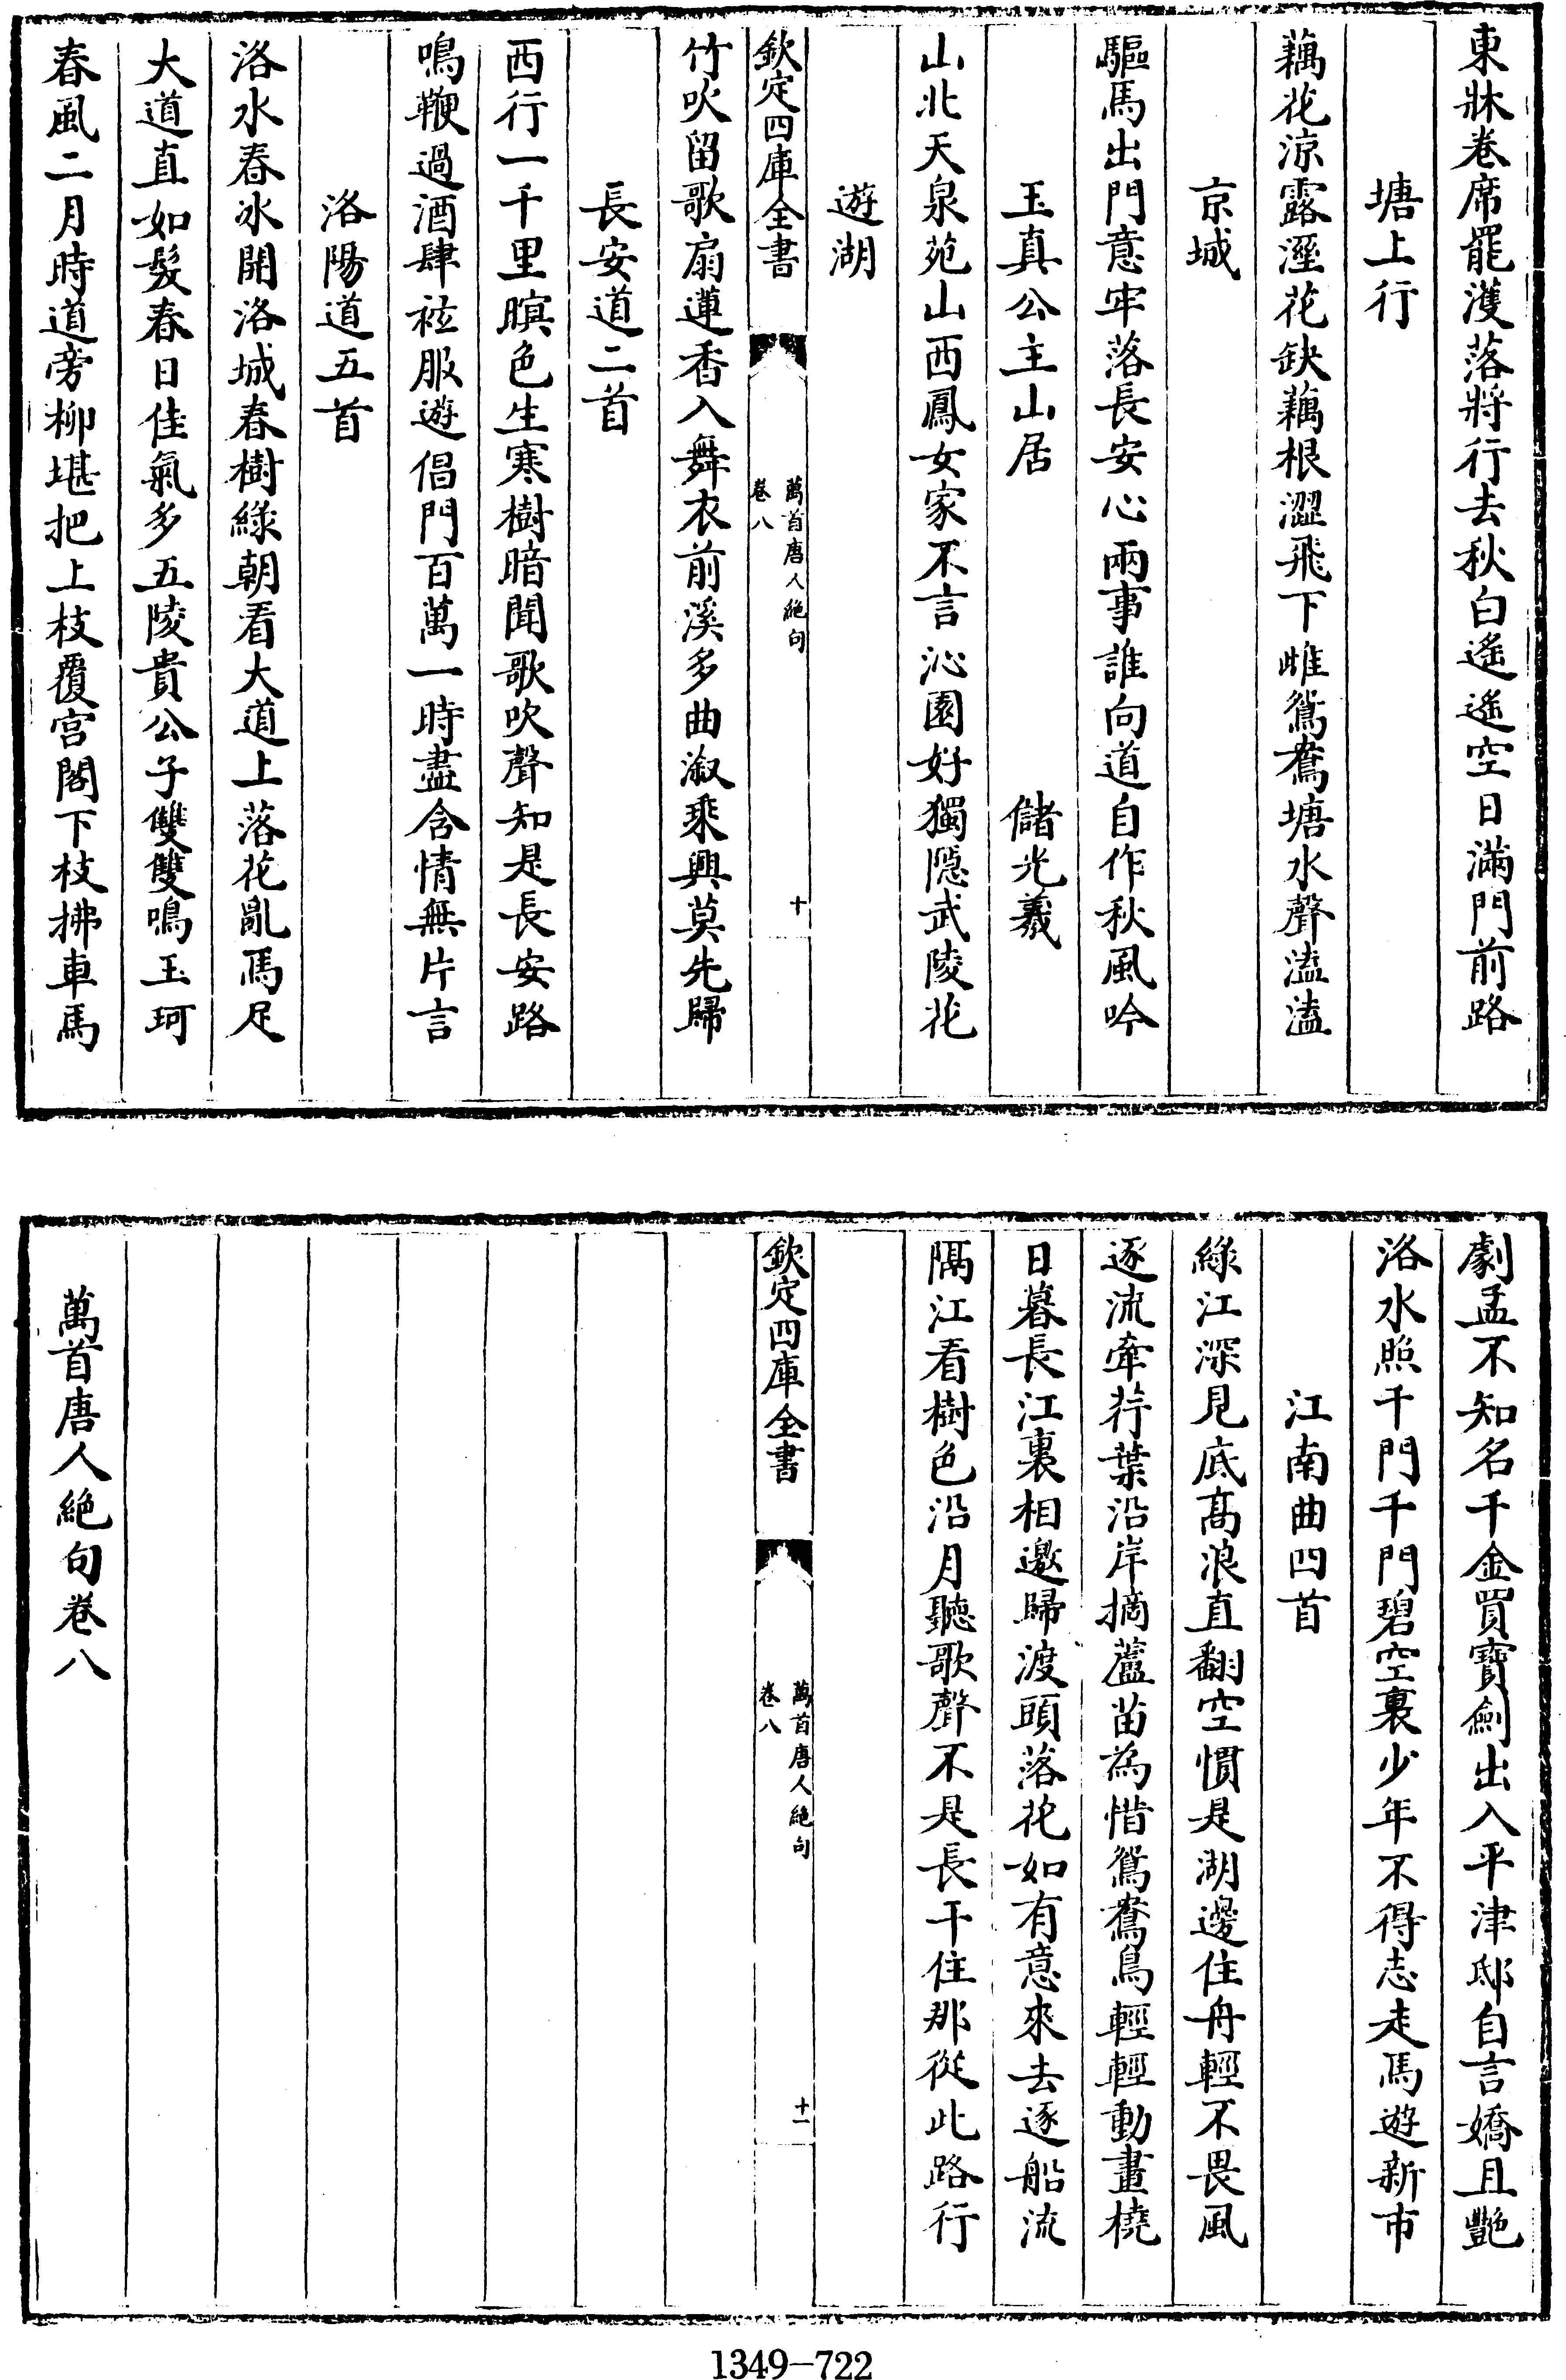 東牀卷席罷濩落將行去秋白遙遙空日滿門前路
塘上行
藕花涼露溼花缺藕根澀飛下雌鴛鴦塘水聲溘溘
京城
驅馬出門意牢落長安心兩事誰向道自作秋風吟
玉真公主山居 儲光羲
山北天泉苑山西鳳女家不言沁園好獨隱武陵花
遊湖
欽定四庫全書
萬首唐人絶句
卷八
十
竹吹留歌扇蓮香入舞衣前溪多曲溆乘興莫先歸
長安道二首
西行一千里暝色生寒樹暗聞歌吹聲知是長安路
鳴鞭過酒肆袨服遊倡門百萬一時盡含情無片言
洛陽道五首
洛水春冰開洛城春樹緑朝看大道上落花亂馬足
大道直如髮春日佳氣多五陵貴公子雙雙鳴玉珂
春風二月時道旁柳堪把上枝覆宮閣下枝拂車馬
劇孟不知名千金買寶劍出入平津邸自言嬌且豔
洛水照千門千門碧空裏少年不得志走馬遊新市
江南曲四首
緑江深見底高浪直翻空慣是湖邊住舟輕不畏風
逐流牽荇葉沿岸摘蘆苗為惜鴛鴦鳥輕輕動畫橈
日暮長江裏相邀歸渡頭落花如有意來去逐船流
隔江看樹色沿月聽歌聲不是長干住那從此路行
欽定四庫全書
萬首唐人絶句
卷八
十一
萬首唐人絶句卷八
1349-722